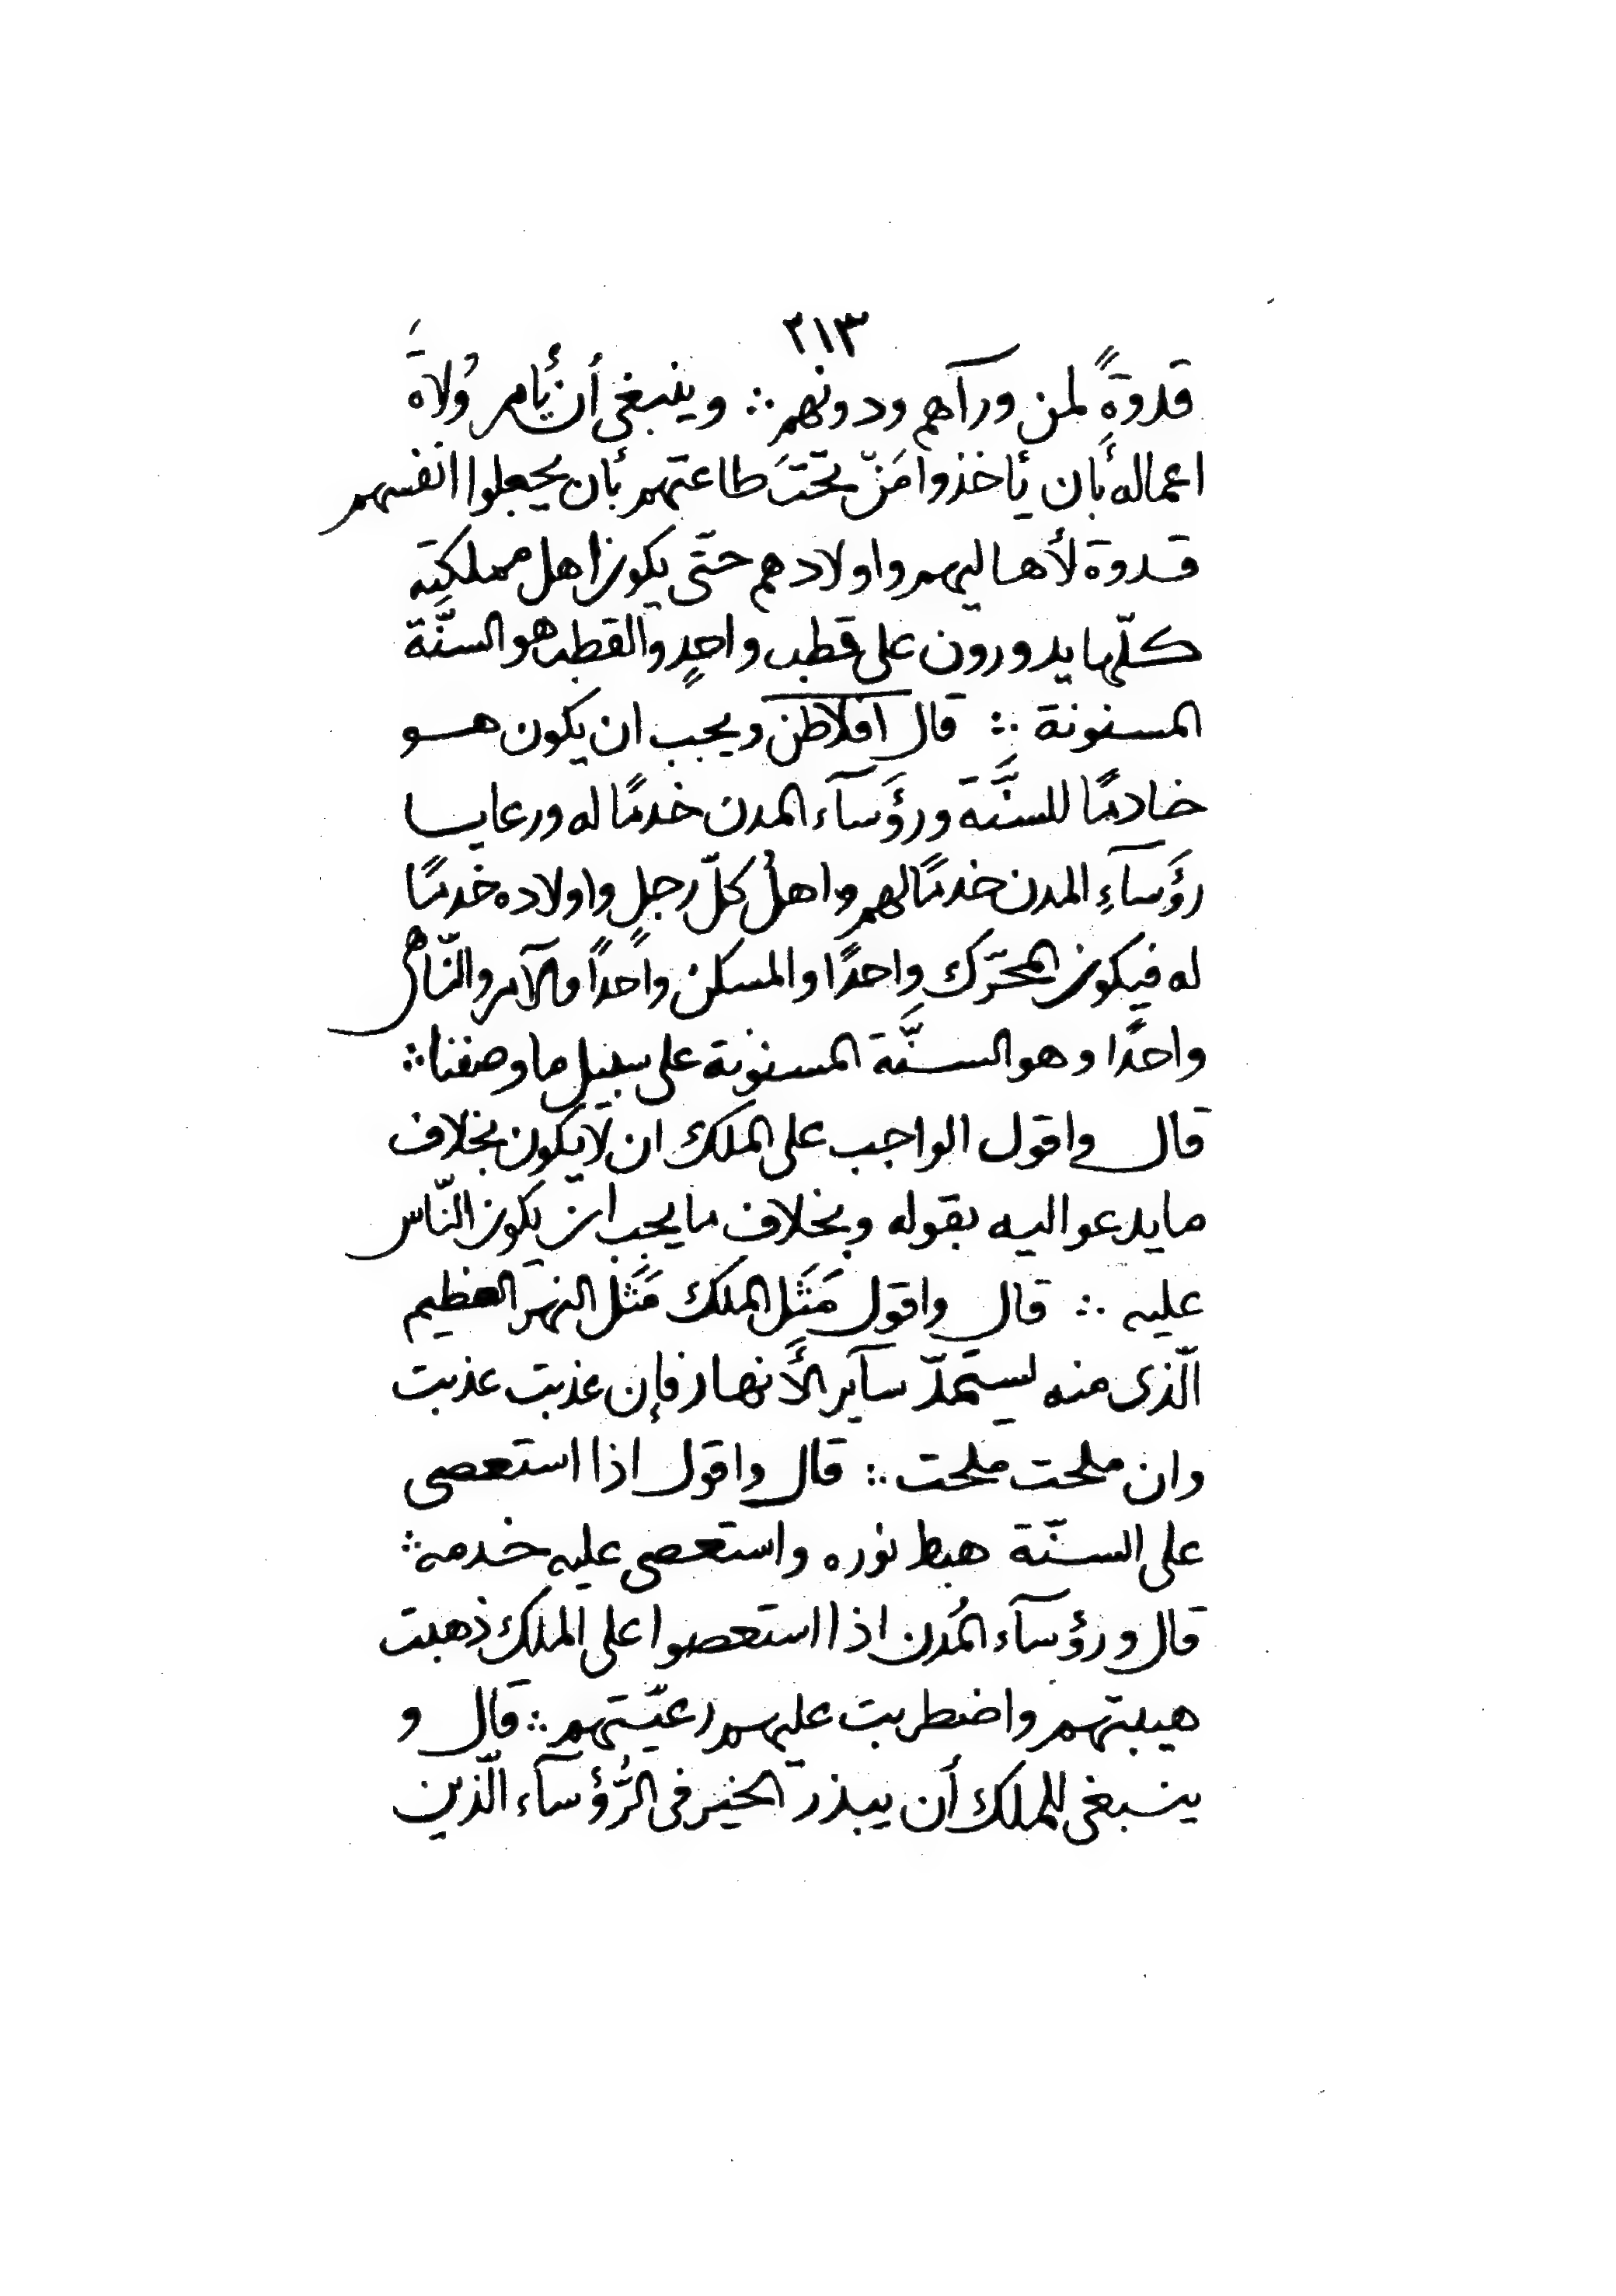 ٢١٣
قدوةً لمن ورآهم ودونهم ∴ وينبغى أن يأمر وُلاةَ
اعماله بأن يأخذوا مَنْ تحتَ طاعتهم بأن يجعلوا انفسهم
قدوة لأهاليهم واولادهم حتّى يكون اهل مملكته
كلّها يدورون على قطب واحدٍ والقطب هو السنّة
المسنونة ∴ قال افلاطن ويجب ان يكون هو
خادمًا للسنَّة ورؤَسآء المدن خدمًا له ورعايا
رؤَسآءِ المدن خدمًا لهم واهلُ كلّ رجلٍ واولاده خدمًا
له فيكون المحرّك واحدًا والمسكن واحداً والآمر والنّاهى
واحدًا وهو السنَّة المسنونة على سبيل ما وصفنا ∴
قال واقول الواجب على الملك ان لا يكون بخلاف
ما يدعوا اليه بقوله وبخلاف ما يجب ان يكون النّاس
عليه ∴ قال واقول مَثَل الملك مَثَل النهر العظيم
الّذى منه يستمدّ سآير الأنهار فإن عذبت عذبت
وان ملحت ملحت ∴ قال واقول اذا استعصى
على السنّة هبط نوره واستعصى عليه خدمه ∴
قال ورؤسآء المُدن اذا استعصوا على الملك ذهبت
هيبتهم واضطربت عليهم رعيّتهم ∴ قال و
ينبغى للملك أن يبذر الخير فى الرُّؤسآء الّذين